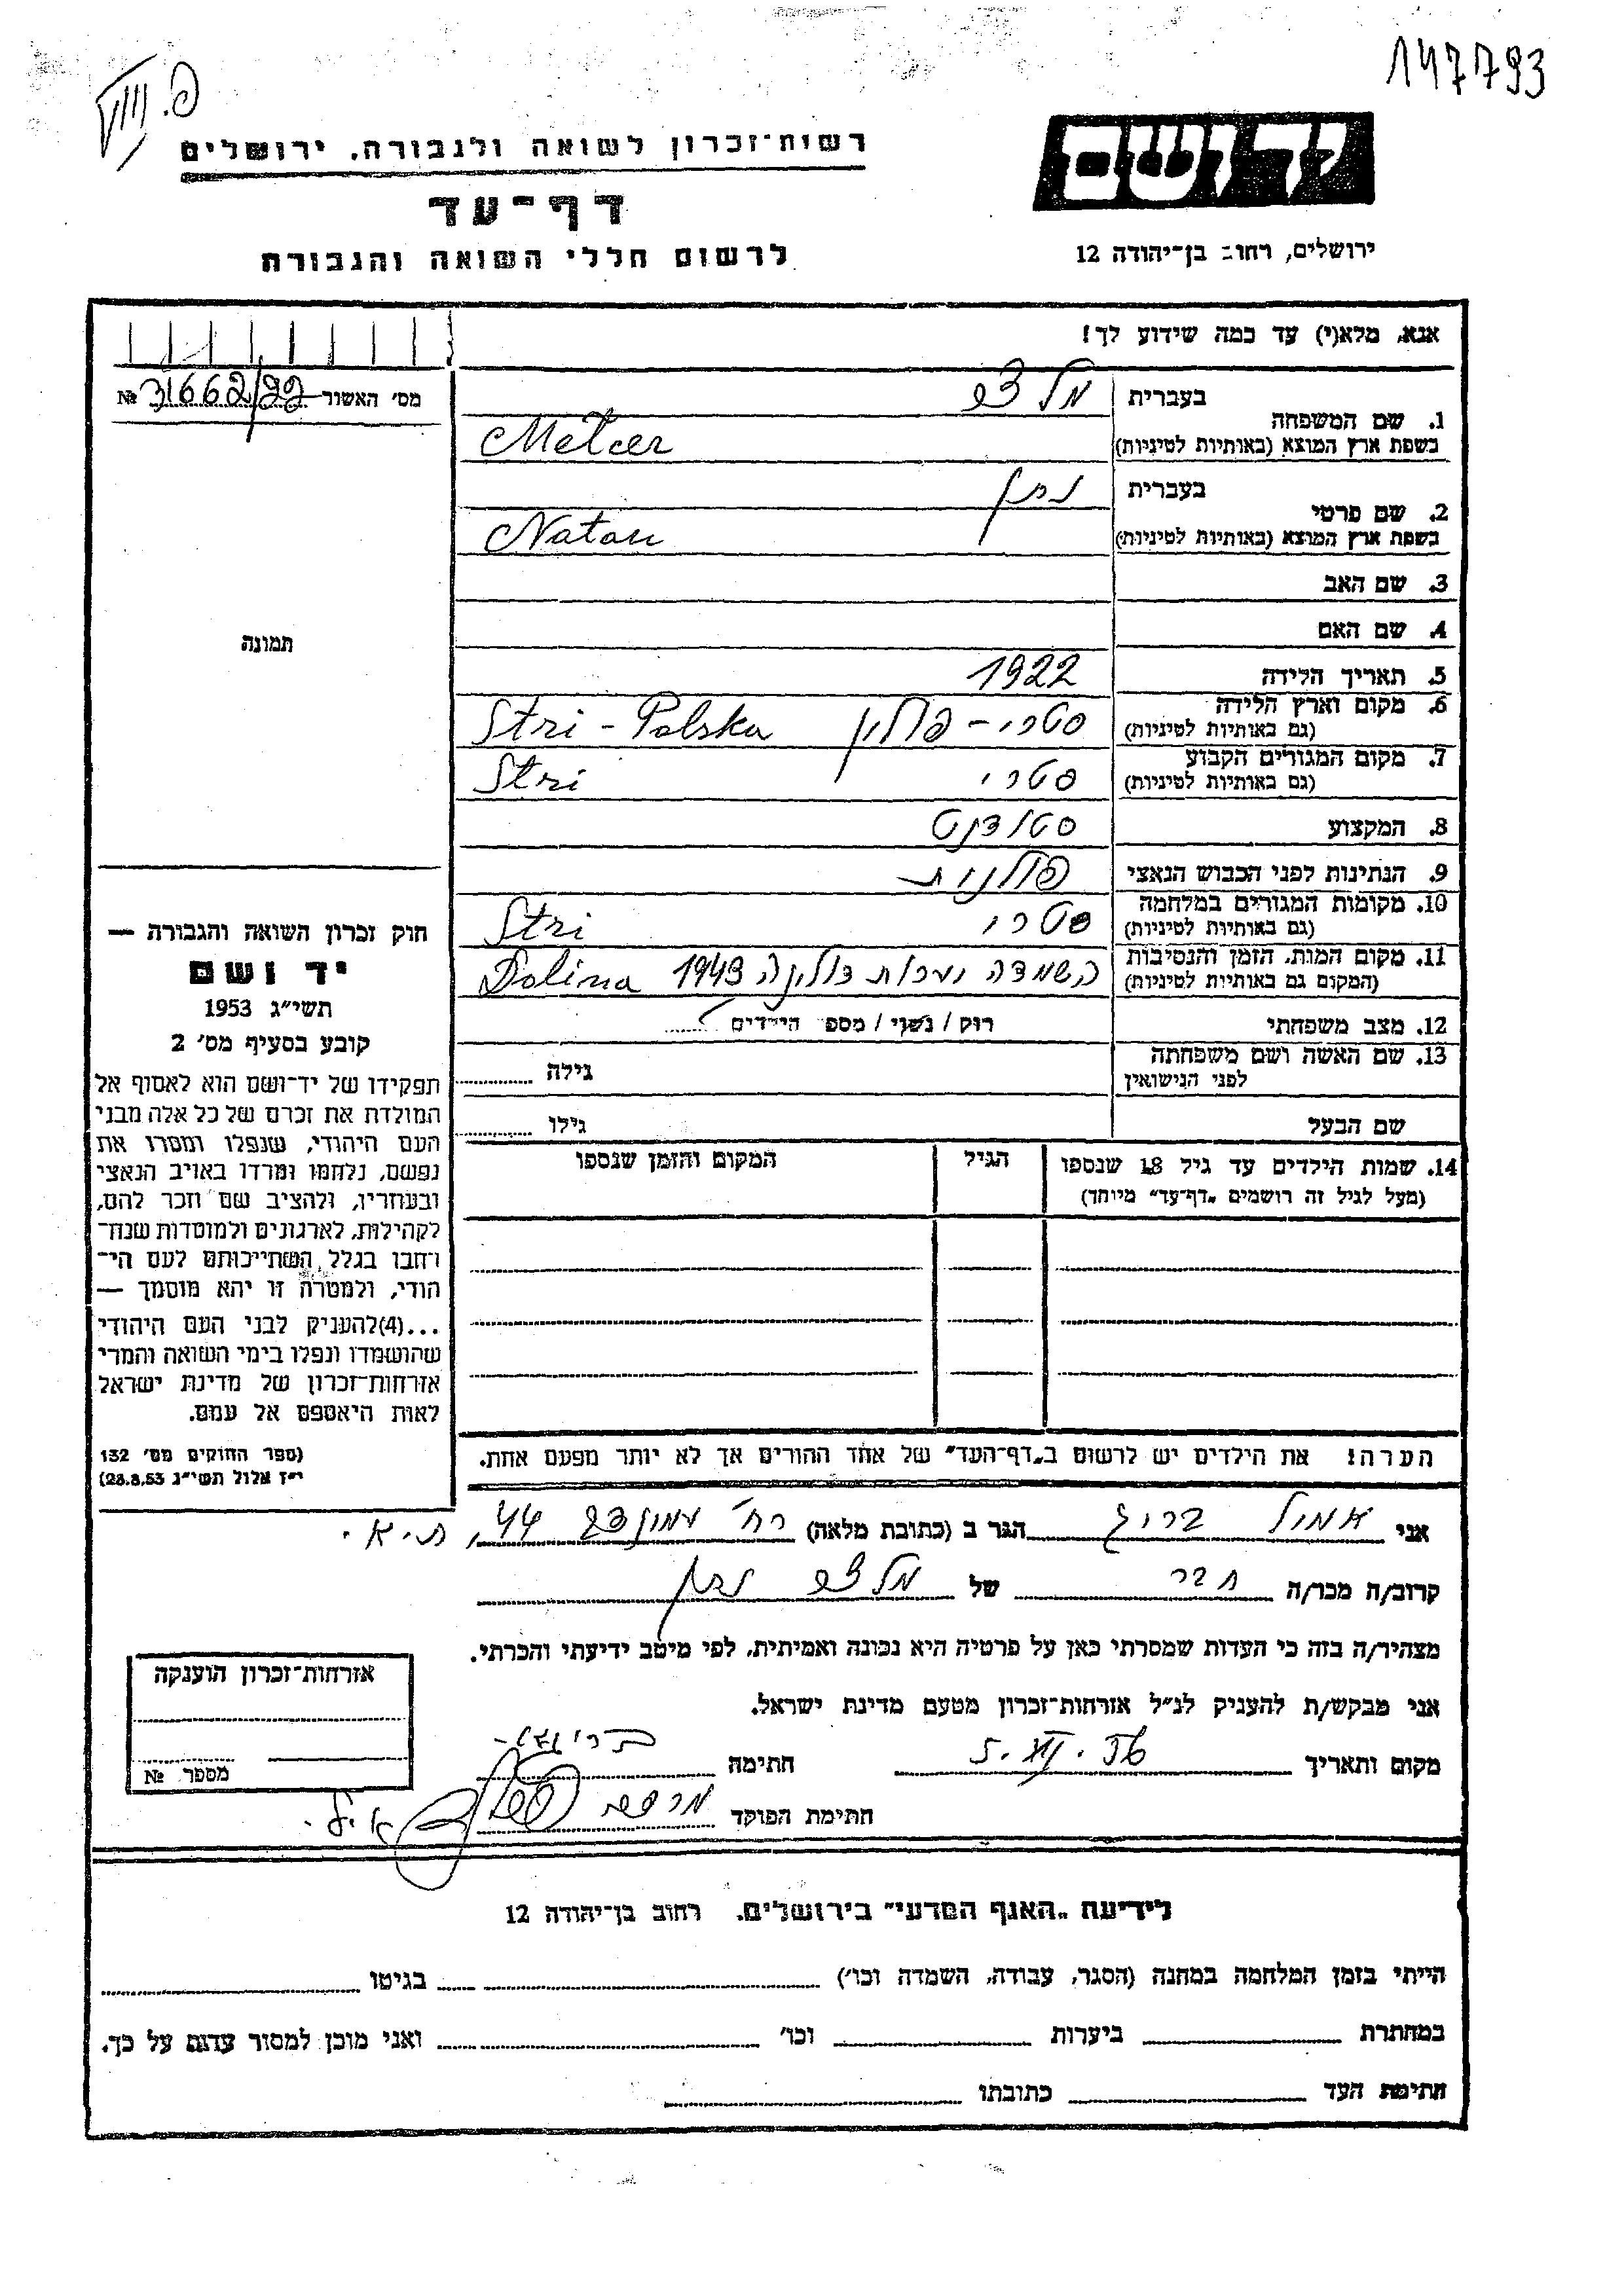 147793
רשות־זכרון לשואה ולגבורה, ירושלים
דף־עד
לרשום חללי השואה והגבורה
יד ושם
ירושלים, רחוב בן־יהודה 12
אנא, מלא(י) עד כמה שידוע לך!
מס׳ האשור № 31662/22
1. שם המשפחה
בעברית
בשפת ארץ המוצא (באותיות לטיניות)
Metcer
2. שם פרטי
בעברית נתן
בשפת ארץ המוצא (באותיות לטיניות) Natan
3. שם האב
4. שם האם
5. תאריך הלידה 1922
6. מקום וארץ הלידה סטרי - פולין Stri - Polska
(גם באותיות לטיניות)
7. מקום המגורים הקבוע סטרי Stri
(גם באותיות לטיניות)
8. המקצוע סטודנט
9. הנתינות לפני הכבוש הנאצי פולנית
10. מקומות המגורים במלחמה סטרי Stri
(גם באותיות לטיניות)
11. מקום המות, הזמן והנסיבות השמדה 1943 Dolina
(המקום גם באותיות לטיניות)
12. מצב משפחתי רוק / נשוי / מספר הילדים
13. שם האשה ושם משפחתה
לפני הנישואין
גילה
שם הבעל גילו
14. שמות הילדים עד גיל 18 שנספו הגיל המקום והזמן שנספו
(מעל לגיל זה רושמים „דף־עד״ מיוחד)
הערה! את הילדים יש לרשום ב„דף־העד״ של אחד ההורים אך לא יותר מפעם אחת.
תמונה
חוק זכרון השואה והגבורה —
יד ושם
תשי״ג 1953
קובע בסעיף מס׳ 2
תפקידו של יד־ושם הוא לאסוף אל
המולדת את זכרם של כל אלה מבני
העם היהודי, שנפלו ומסרו את
נפשם, נלחמו ומרדו באויב הנאצי
ובעוזריו, ולהציב שם וזכר להם,
לקהילות, לארגונים ולמוסדות שנח־
רחבו בגלל השתייכותם לעם הי־
הודי, ולמטרה זו יהא מוסמך —
...(4)להעניק לבני העם היהודי
שהושמדו ונפלו בימי השואה והמרי
אזרחות־זכרון של מדינת ישראל
לאות היאספם אל עמם.
(ספר החוקים מס׳ 132
י״ז אלול תשי״ג 28.8.53)
אני הגר ב (כתובת מלאה) רח׳ 44, ת.א.
קרוב/ה מכר/ה חבר של נתן
מצהיר/ה בזה כי העדות שמסרתי כאן על פרטיה היא נכונה ואמיתית, לפי מיטב ידיעתי והכרתי.
אני מבקש/ת להעניק לנ״ל אזרחות־זכרון מטעם מדינת ישראל.
מקום ותאריך חתימה
חתימת הפוקד
אזרחות־זכרון הוענקה
מספר №
לידיעת „האגף המדעי״ בירושלים. רחוב בן־יהודה 12
הייתי בזמן המלחמה במחנה (הסגר, עבודה, השמדה וכו׳) בגיטו
במחתרת ביערות וכו׳ ואני מוכן למסור עדות על כך.
חתימת העד כתובתו